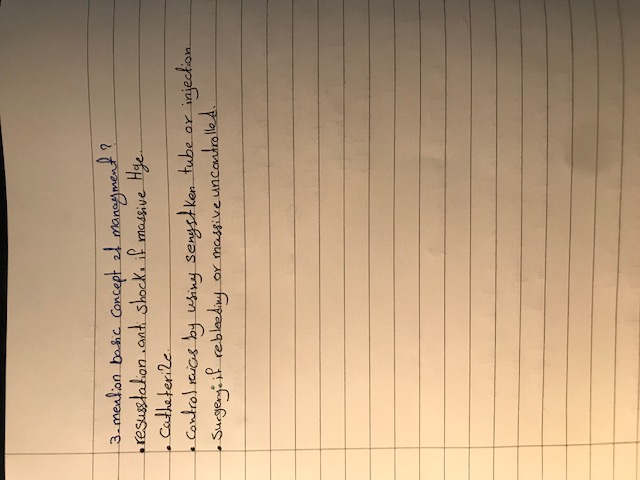 3- mention basic concept of managment?
• resusstation. anti shock. if massive Hge.
• Catheterize.
• Control by using sengstken tube or injection
• Surgery: if rebleeding or massive uncontrolled.